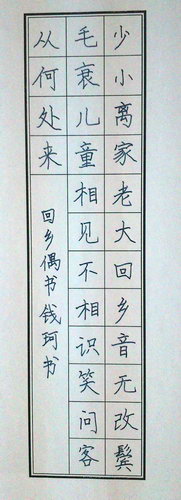 少小离家老大回乡音无改鬓
毛衰儿童相见不相识笑问客
从何处来
回乡偶书钱珂书